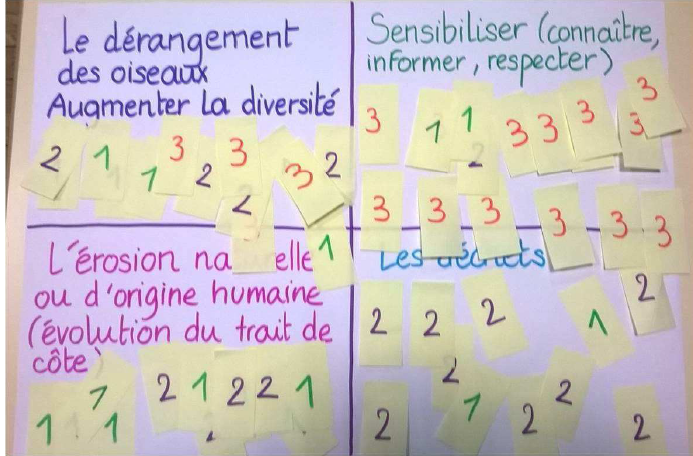 Le dérangement
des oiseaux
Augmenter la diversité
2 1 1 3 2 3 2 3 2
Sensibiliser (connaître,
informer, respecter)
3 1 1 2 3 3 3 3 3
3 3 3 3 3 3
L'érosion na elle 1
ou d'origine humaine
(évolution du trait de
côte)
1 1 1 2 1 2 2 1
Les déchets
2 2 2 1 2
2 2 1 2 2 2